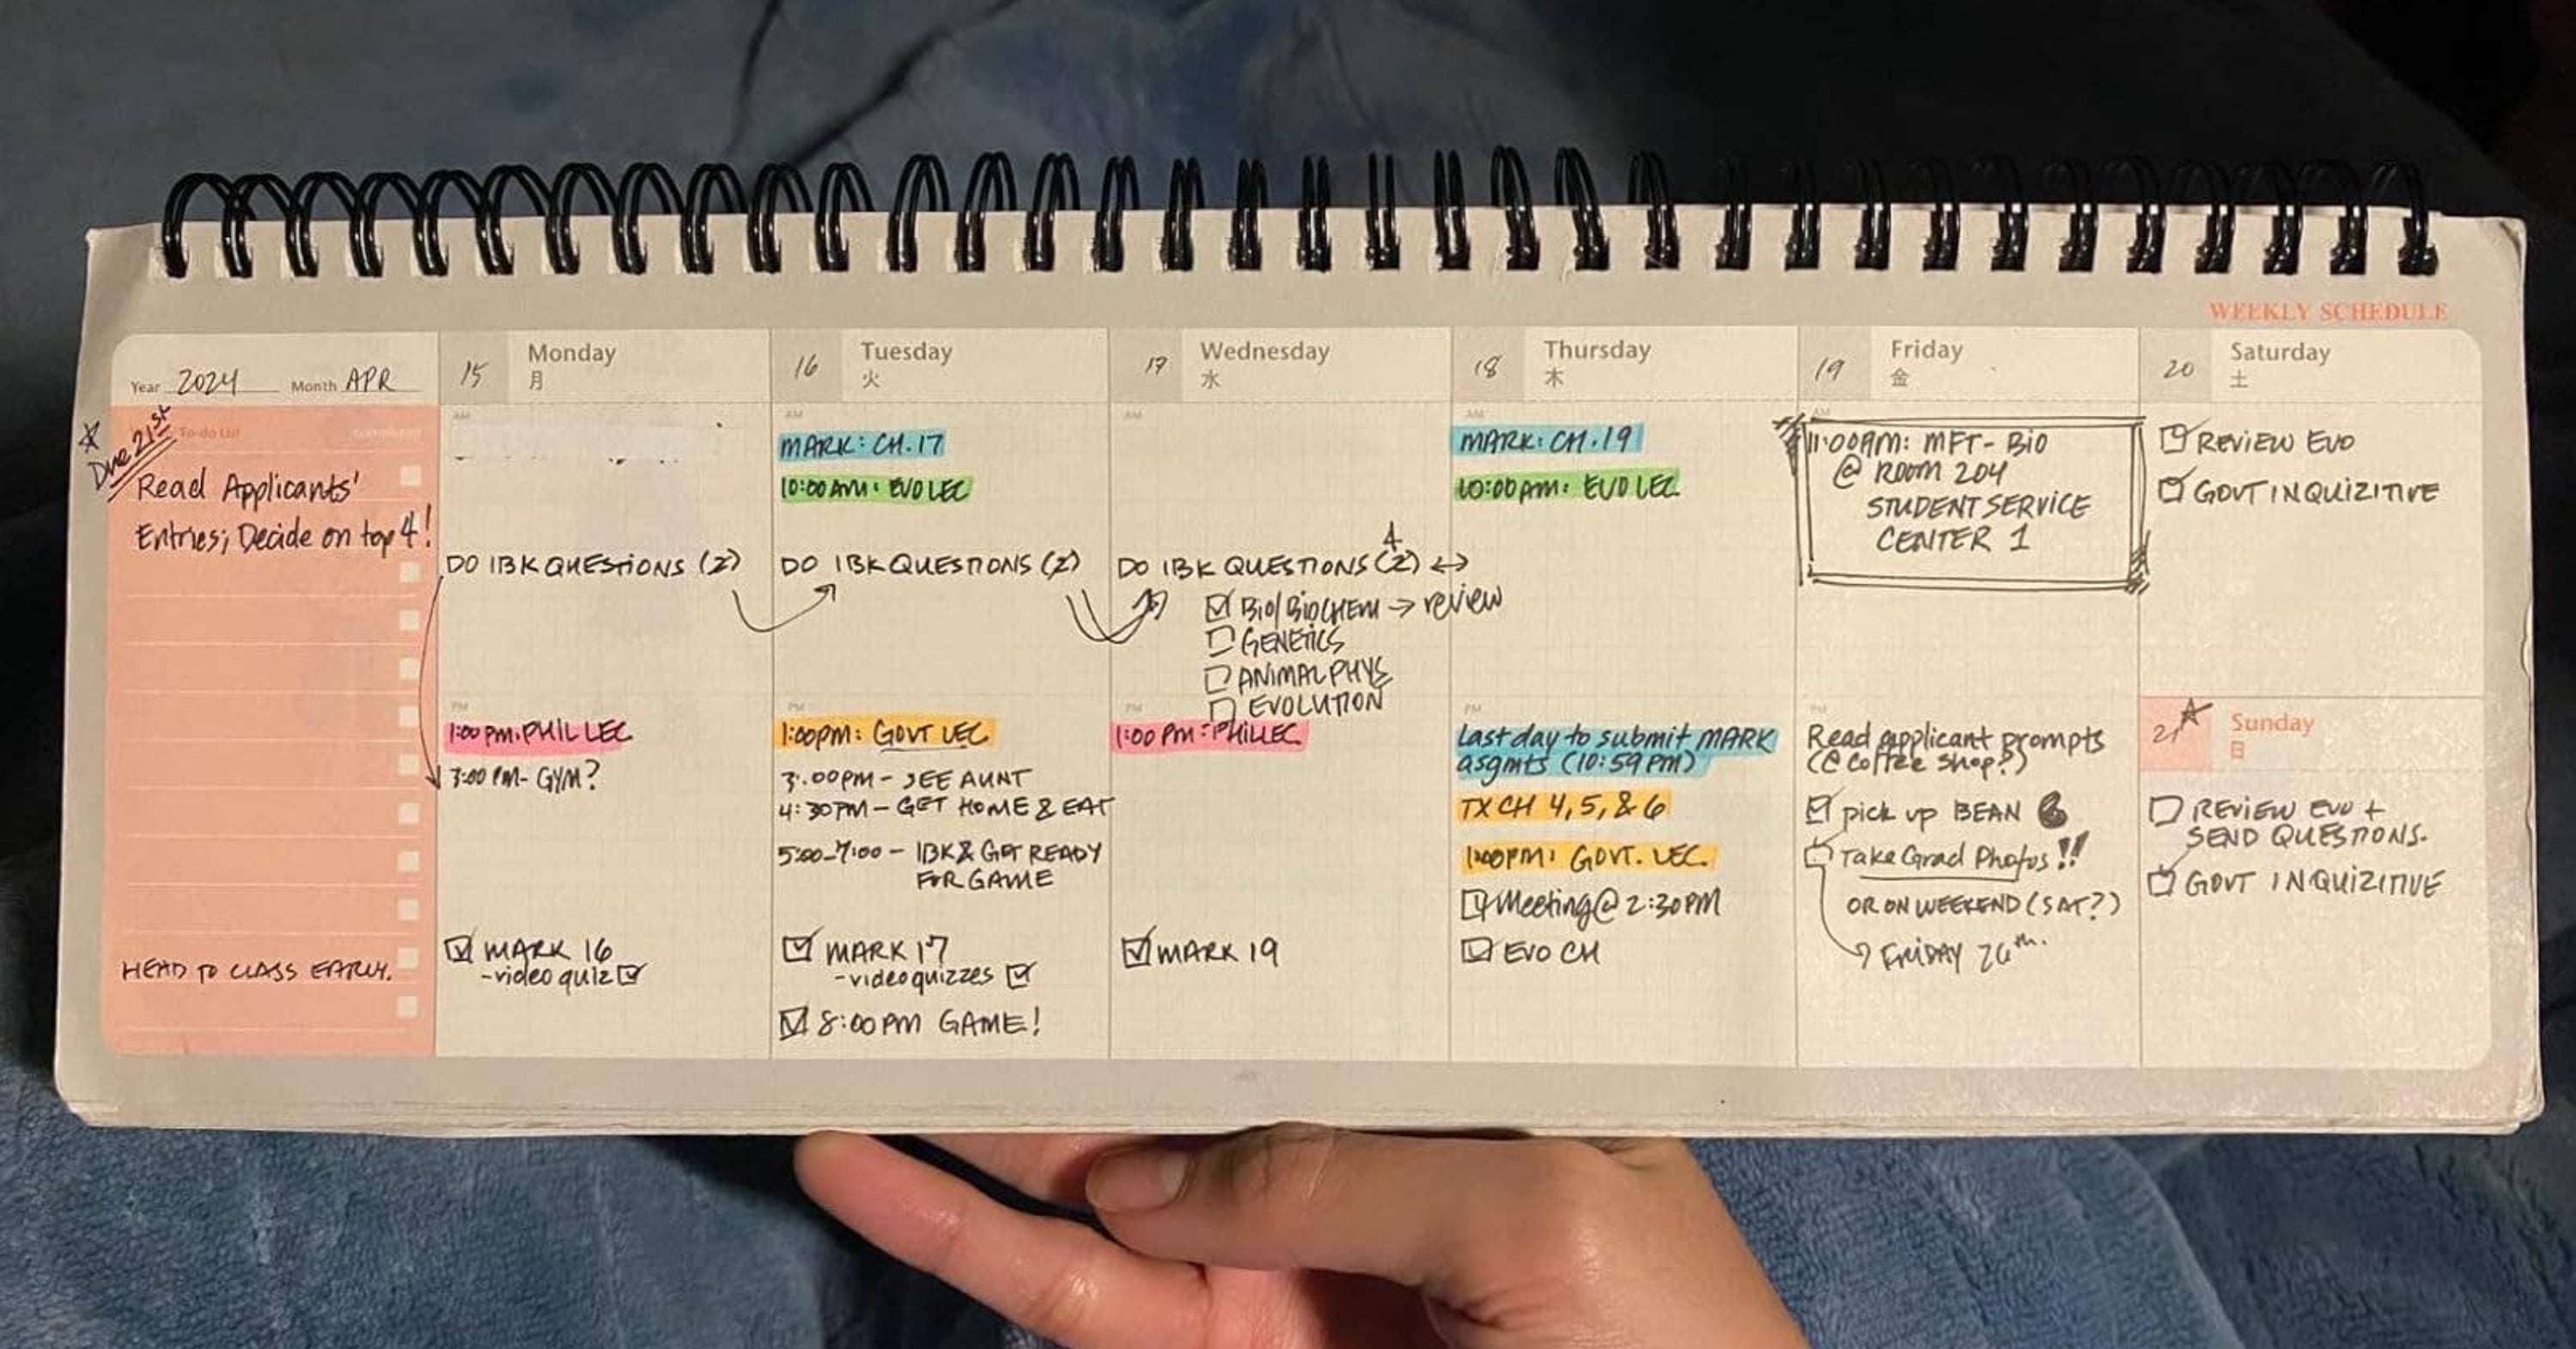 WEEKLY SCHEDULE
Year 2024 Month APR
Due 21st
To-do List
completed
Read Applicants'
Entries; Decide on top 4!
HEAD TO CLASS EARLY.
15 Monday
月
AM
DO IBK QUESTIONS (2)
PM
1:00 PM: PHIL LEC
3:00 PM- GYM?
MARK 16
-video quiz
16 Tuesday
火
AM
MARK: CH. 17
10:00 AM: EVO LEC
DO IBK QUESTIONS (2)
PM
1:00PM: GOVT LEC
3:00PM- SEE AUNT
4:30PM- GET HOME & EAT
5:00-7:00 - IBK & GET READY
FOR GAME
MARK 17
-video quizzes
8:00 PM GAME!
17 Wednesday
水
AM
4
DO IBK QUESTIONS (2) ↔
BIO/BIOCHEM → review
GENETICS
ANIMAL PHYS
EVOLUTION
PM
1:00 PM: PHIL LEC
MARK 19
18 Thursday
木
AM
MARK: CH. 19
10:00 AM: EVO LEC
PM
Last day to submit MARK
asgmts (10:59 PM)
TX CH 4, 5, & 6
1:00PM: GOVT. LEC.
Meeting @ 2:30PM
EVO CH
19 Friday
金
AM
11:00AM: MFT- BIO
@ ROOM 204
STUDENT SERVICE
CENTER 1
PM
Read applicant prompts
(@ coffee shop?)
pick up BEAN
Take Grad Photos!!
OR ON WEEKEND (SAT?)
→ FRIDAY 26th.
20 Saturday
土
REVIEW EVO
GOVT INQUIZITIVE
21 Sunday
日
REVIEW EVO +
SEND QUESTIONS.
GOVT INQUIZITIVE